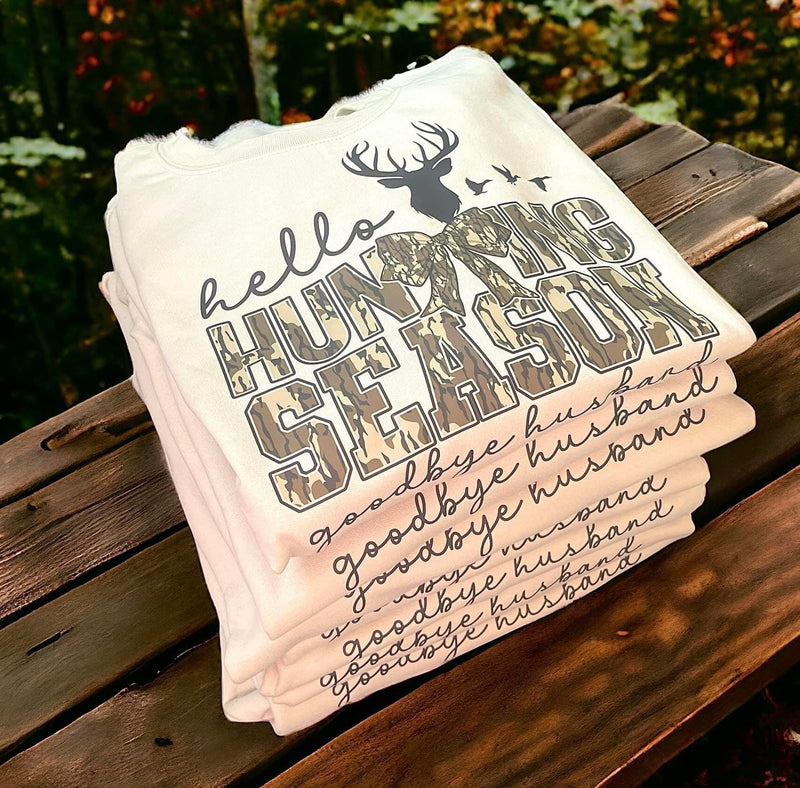 hello
HUNTING
SEASON
goodbye husband
goodbye husband
goodbye husband
goodbye husband
goodbye husband
goodbye husband
goodbye husband